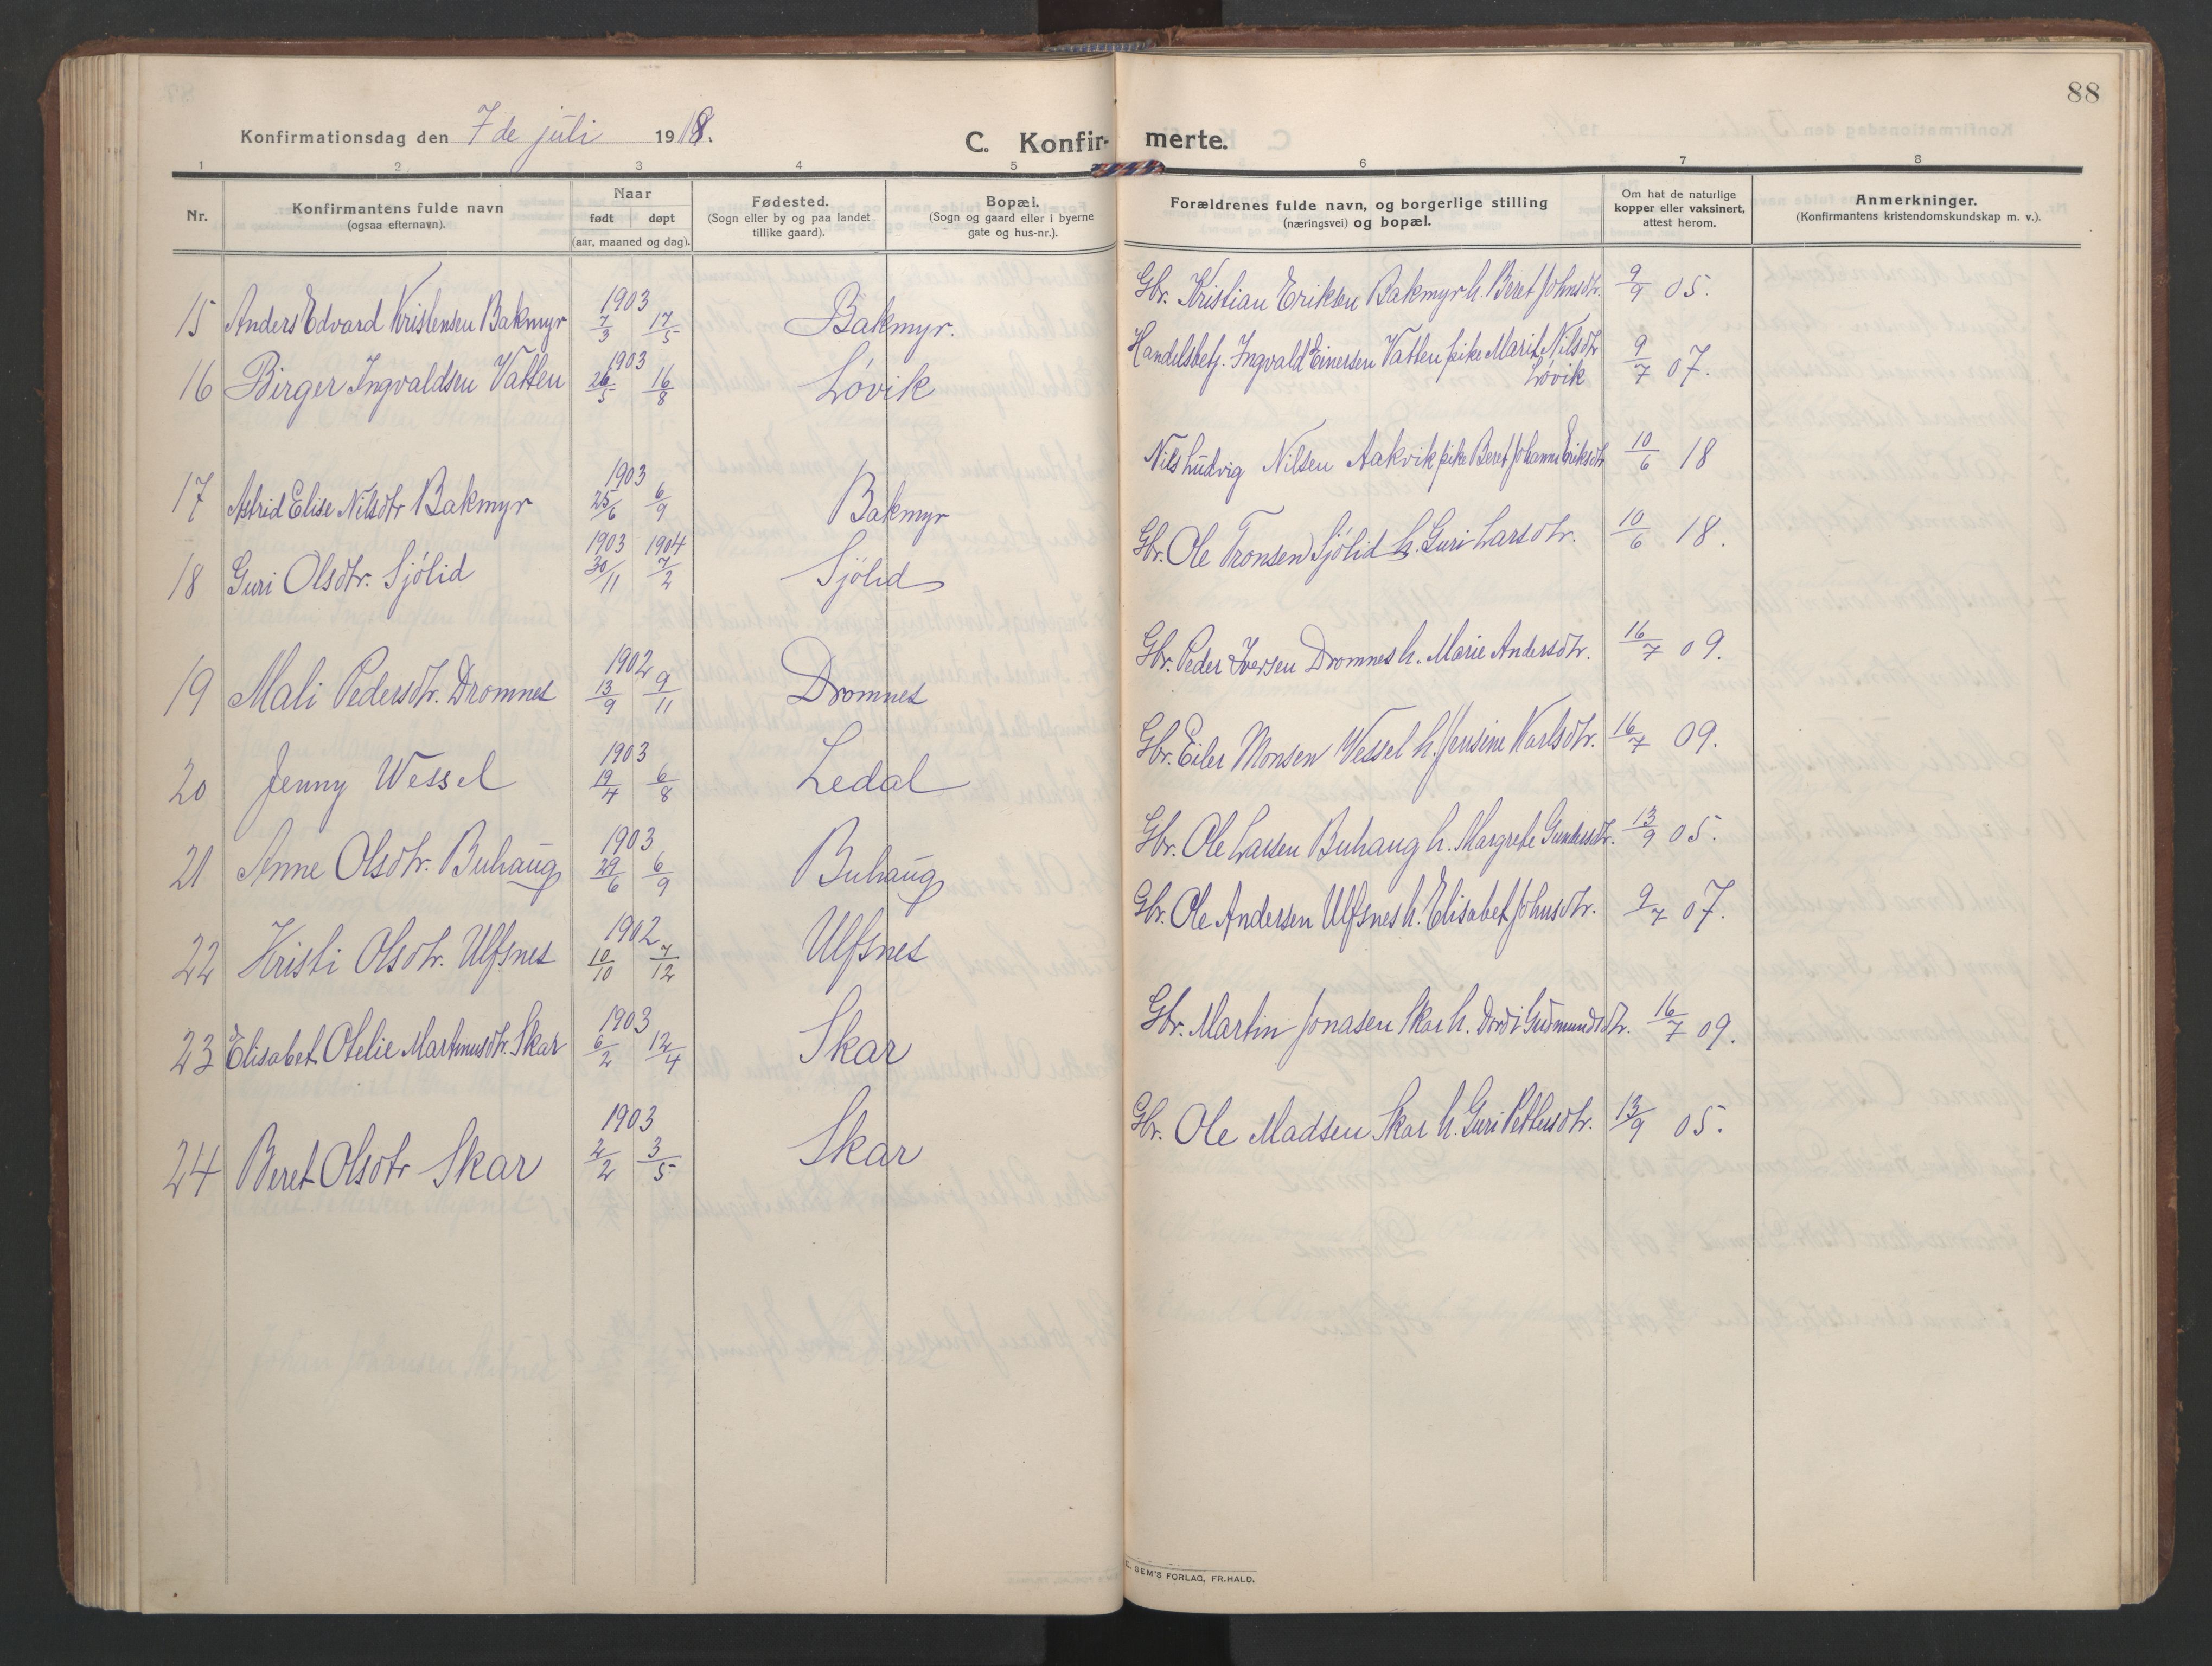 88
Konfirmationsdag den 7de juli 1918.
C. Konfirmerte.
1 2 3 4 5 6 7 8
Nr.
Konfirmantens fulde navn
(ogsaa efternavn).
Naar
født døpt
(aar, maaned og dag).
Fødested.
(Sogn eller by og paa landet
tillike gaard).
Bopæl.
(Sogn og gaard eller i byerne
gate og hus-nr.).
Forældrenes fulde navn, og borgerlige stilling
(næringsvei) og bopæl.
Om hat de naturlige
kopper eller vaksinert,
attest herom.
Anmerkninger.
(Konfirmantens kristendomskundskap m. v.).
15 Anders Edvard Kristensen Bakmyr 1903 7/3 17/5 Bakmyr. Gbr. Kristian Eriksen Bakmyr h. Beret Johnsdtr. 9/9 05.
16 Birger Ingvaldsen Vatten 1903 26/5 16/8 Lóvik Handelsbetj. Ingvald Einersen Vatten pike Marit Nilsdtr 9/7 07.
Lóvik
17 Astrid Elise Nilsdtr Bakmyr 1903 25/6 6/9 Bakmyr Nils Ludvig Nilsen Aakvik pike Beret Johanna Eriksdtr 10/6 18
18 Guri Olsdtr. Sjólid 1903 30/11 1904 7/2 Sjólid Gbr. Ole Tronsen Sjólid h. Guri Larsdtr. 10/6 18.
19 Mali Pedersdtr. Dromnes 1902 13/9 9/11 Dromnes Gbr. Peder Iversen Dromnes h. Marie Andersdtr. 16/7 09.
20 Jenny Wessel 1903 19/4 6/8 Ledal Gbr. Eiler Monsen Wessel h. Jensine Karlsdtr. 16/7 09.
21 Anne Olsdtr. Buhaug 1903 29/6 6/9 Buhaug Gbr. Ole Larsen Buhaug h. Margrete Gundersdtr. 13/9 05.
22 Kristi Olsdtr. Ulfsnes 1902 10/10 7/12 Ulfsnes Gbr. Ole Andersen Ulfsnes h. Elisabet Johnsdtr. 9/7 07.
23 Elisabet Otelie Martinusdtr. Skar 1903 6/2 12/4 Skar Gbr. Martin Jonasen Skar h. Dordi Gudmundsdtr. 16/7 09.
24 Beret Olsdtr Skar 1903 2/2 3/5 Skar Gbr. Ole Madsen Skar h. Guri Pettersdtr. 13/9 05.
SEM'S FORLAG, FR.HALD.